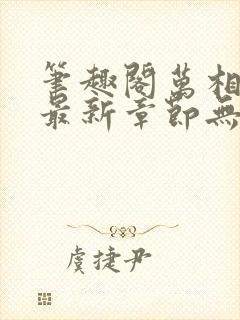 筆趣閣萬相
最新章節無
虞捷尹